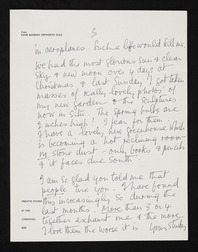 From
DAME BARBARA HEPWORTH D.B.E.
3
in aeroplanes. Such a life would kill me.
We had the most glorious sun & clear
sky & new moon over 4 days at
Christmas & last Sunday I got taken
masses of really lovely photos of
my new garden & the sculptures
now in situ. The spring bulbs are
inches high! I fear for them.
I have a lovely new greenhouse which
is becoming a hot reclining room -
no stone dust - only books & pencils
& it faces due South.
I am so glad you told me that
people like you. I have found
this increasingly so during the
last months. More than 3 or 4
together exhaust me & the more
I love them the worse it is.
TREWYN STUDIO
ST IVES
CORNWALL